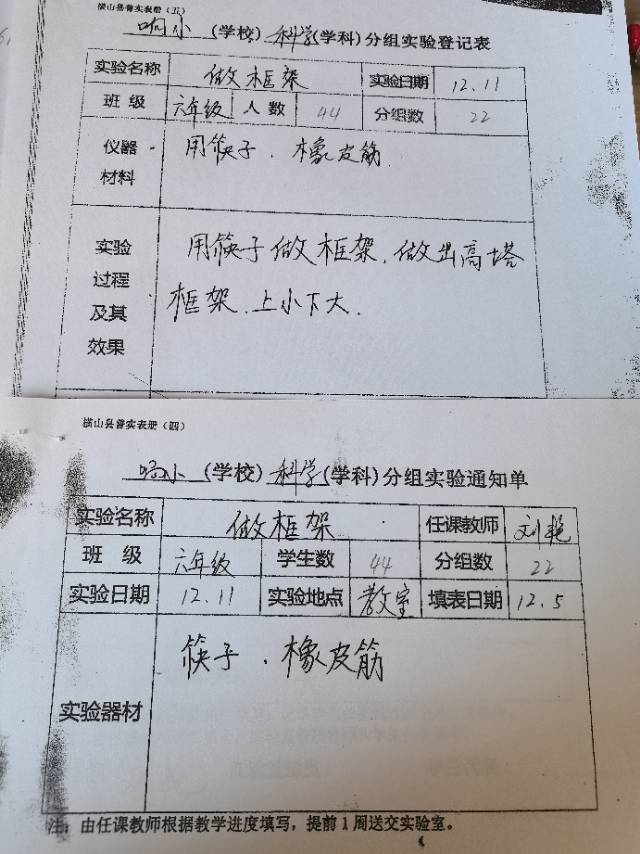 横山县普实表册（五）
响小（学校）科学（学科）分组实验登记表
实验名称 做框架 实验日期 12.11
班 级 六年级 人数 44 分组数 22
仪器材料 用筷子、橡皮筋
实验过程及其效果 用筷子做框架，做出高塔
框架，上小下大.
横山县普实表册（四）
响小（学校）科学（学科）分组实验通知单
实验名称 做框架 任课教师 刘艳
班 级 六年级 学生数 44 分组数 22
实验日期 12.11 实验地点 教室 填表日期 12.5
实验器材 筷子、橡皮筋
注：由任课教师根据教学进度填写，提前1周送交实验室。